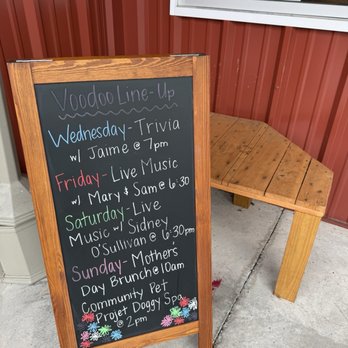 Voodoo Line-Up
Wednesday- Trivia
w/ Jaime @ 7pm
Friday- Live Music
w/ Mary & Sam @ 6:30
Saturday- Live
Music w/ Sidney
O'Sullivan @ 6:30pm
Sunday- Mother's
Day Brunch @ 10am
Community Pet
Projet Doggy Spa
@ 2pm